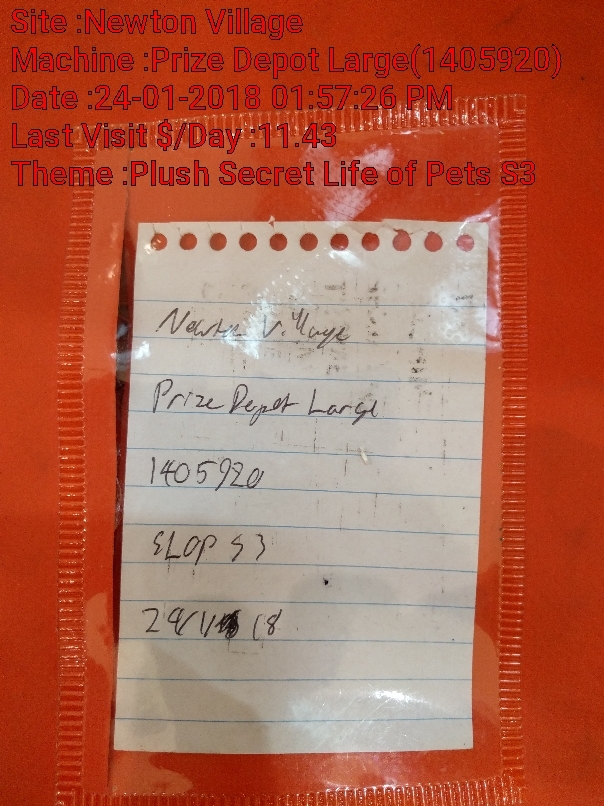 Site :Newton Village
Machine :Prize Depot Large(1405920)
Date :24-01-2018 01:57:26 PM
Last Visit $/Day :11.43
Theme :Plush Secret Life of Pets S3
Newton Village
Prize Depot Large
1405920
SLOP S3
24/1/18